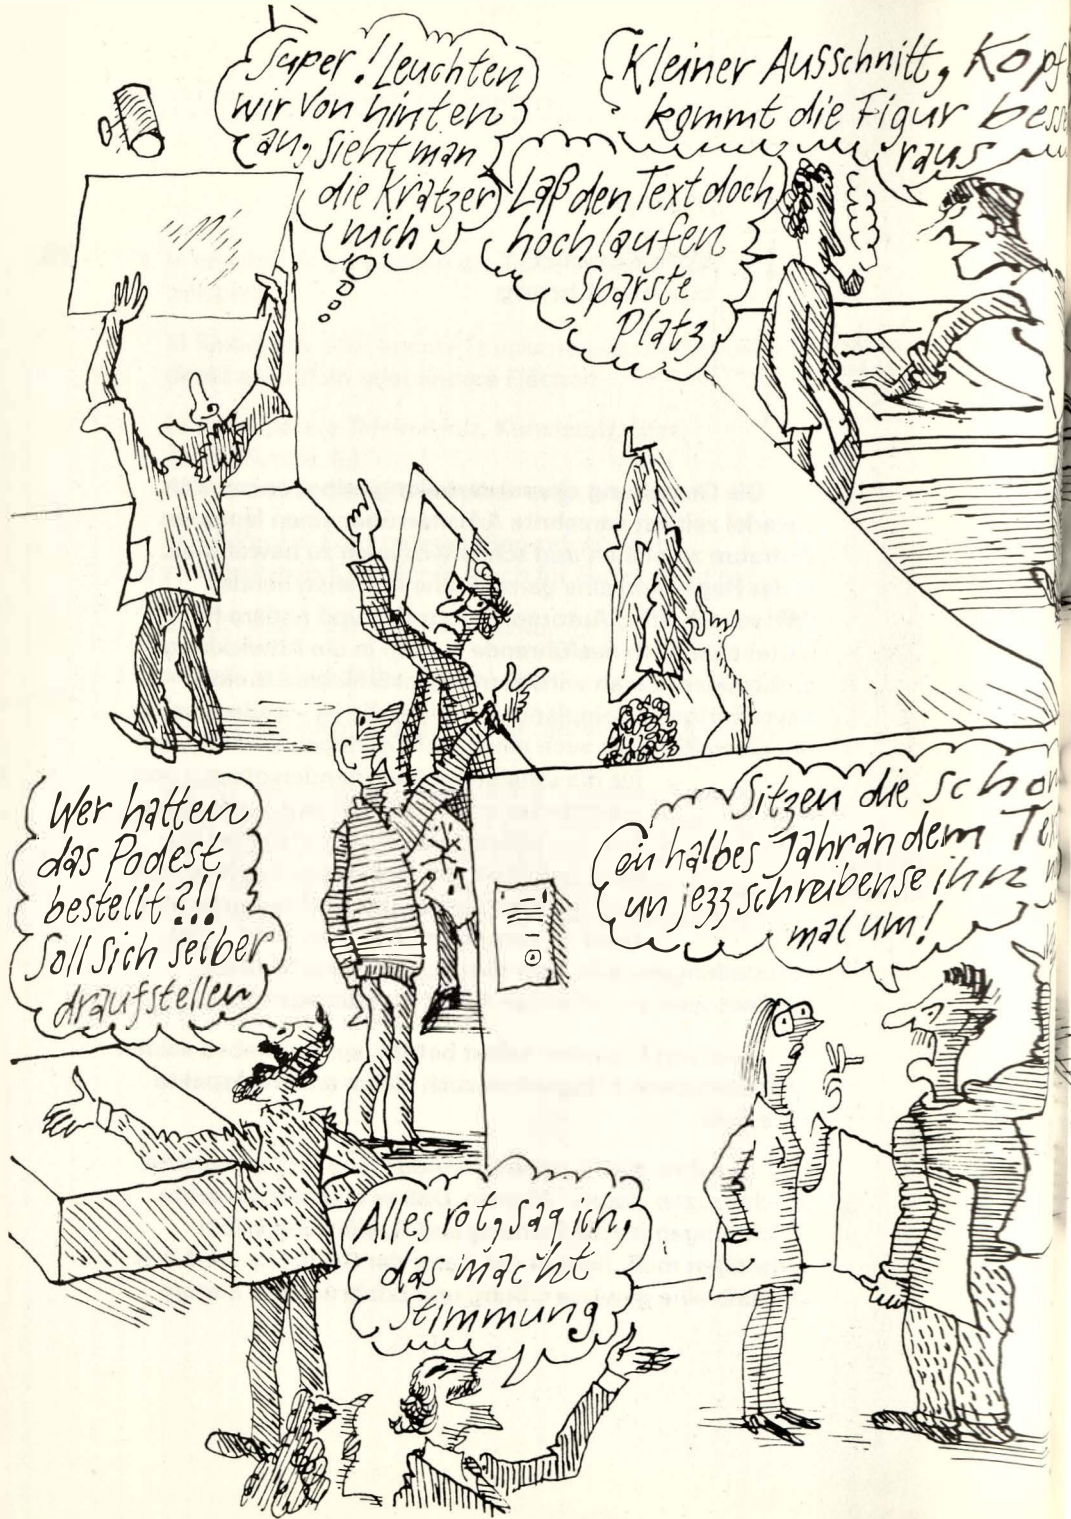 Super! Leuchten
wir von hinten
an, sieht man
die Kratzer
nich
Kleiner Ausschnitt, Kopf
kommt die Figur besse
raus
Laß den Text doch
hochlaufen
Sparste
Platz
Wer hat'n
das Podest
bestellt?!!
Soll sich selber
draufstellen
Sitzen die schon
ein halbes Jahr an dem
un jezz schreibense ihn
mal um!
Alles rot, sag ich,
das macht
Stimmung